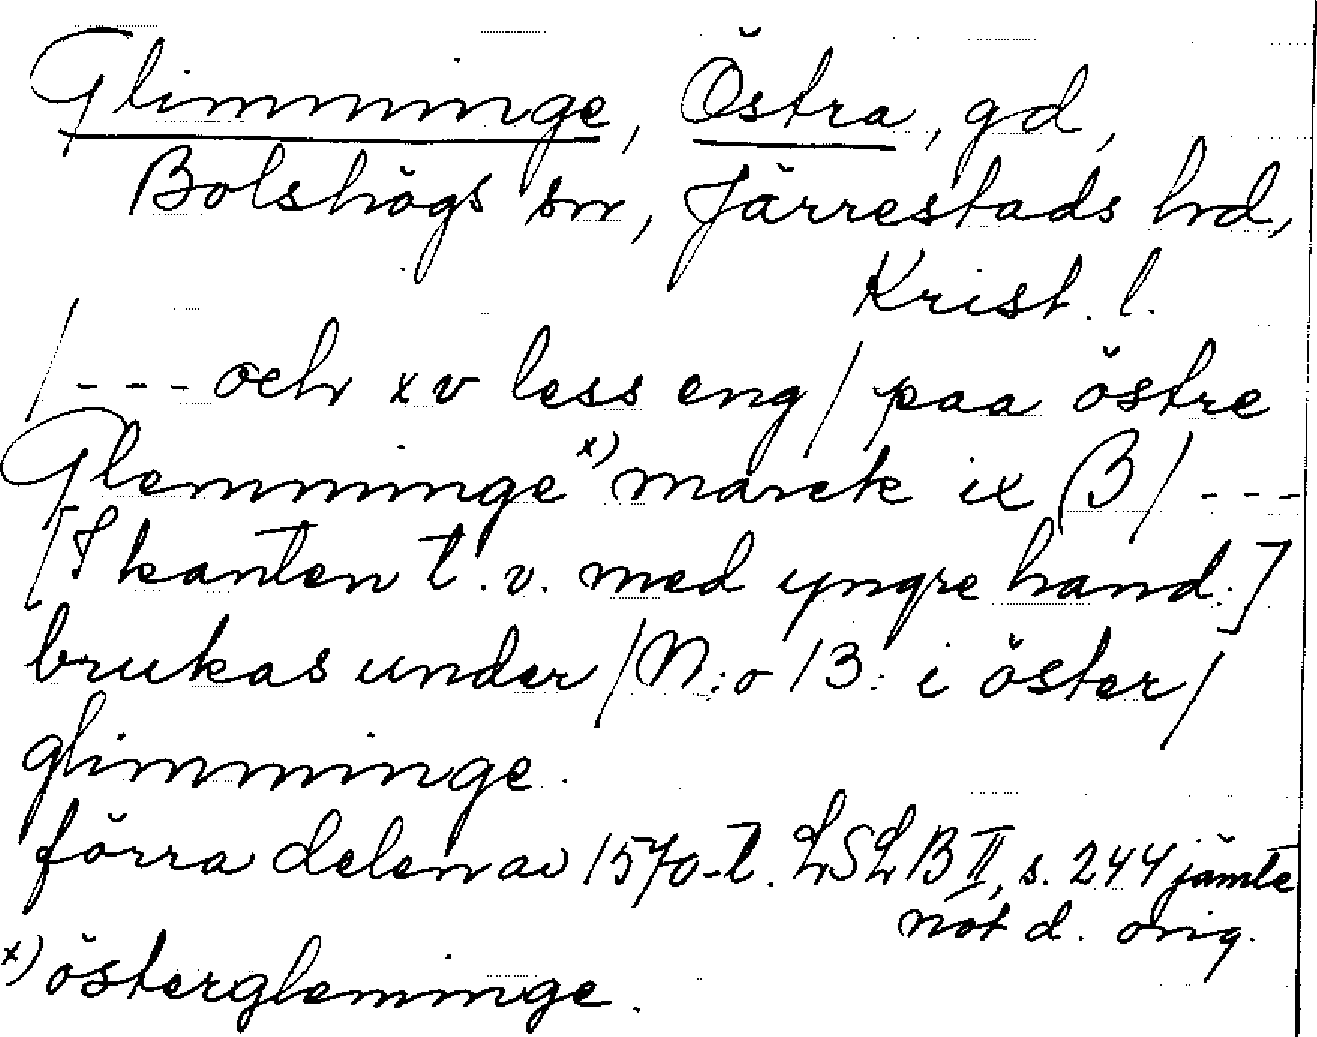 Glimminge, Östra, gd,
Bolshögs sn, Järrestads hd,
Krist. l.
/--- och xv less eng/ paa östre
Glemminge x) marck ix β/ ---
[I kanten t.v. med yngre hand:]
brukas under /N:o 13: i öster/
glimminge.
förra delen av 1570-t. LSLB II, s. 244 jämte
not d. orig.
x) östergleminge.